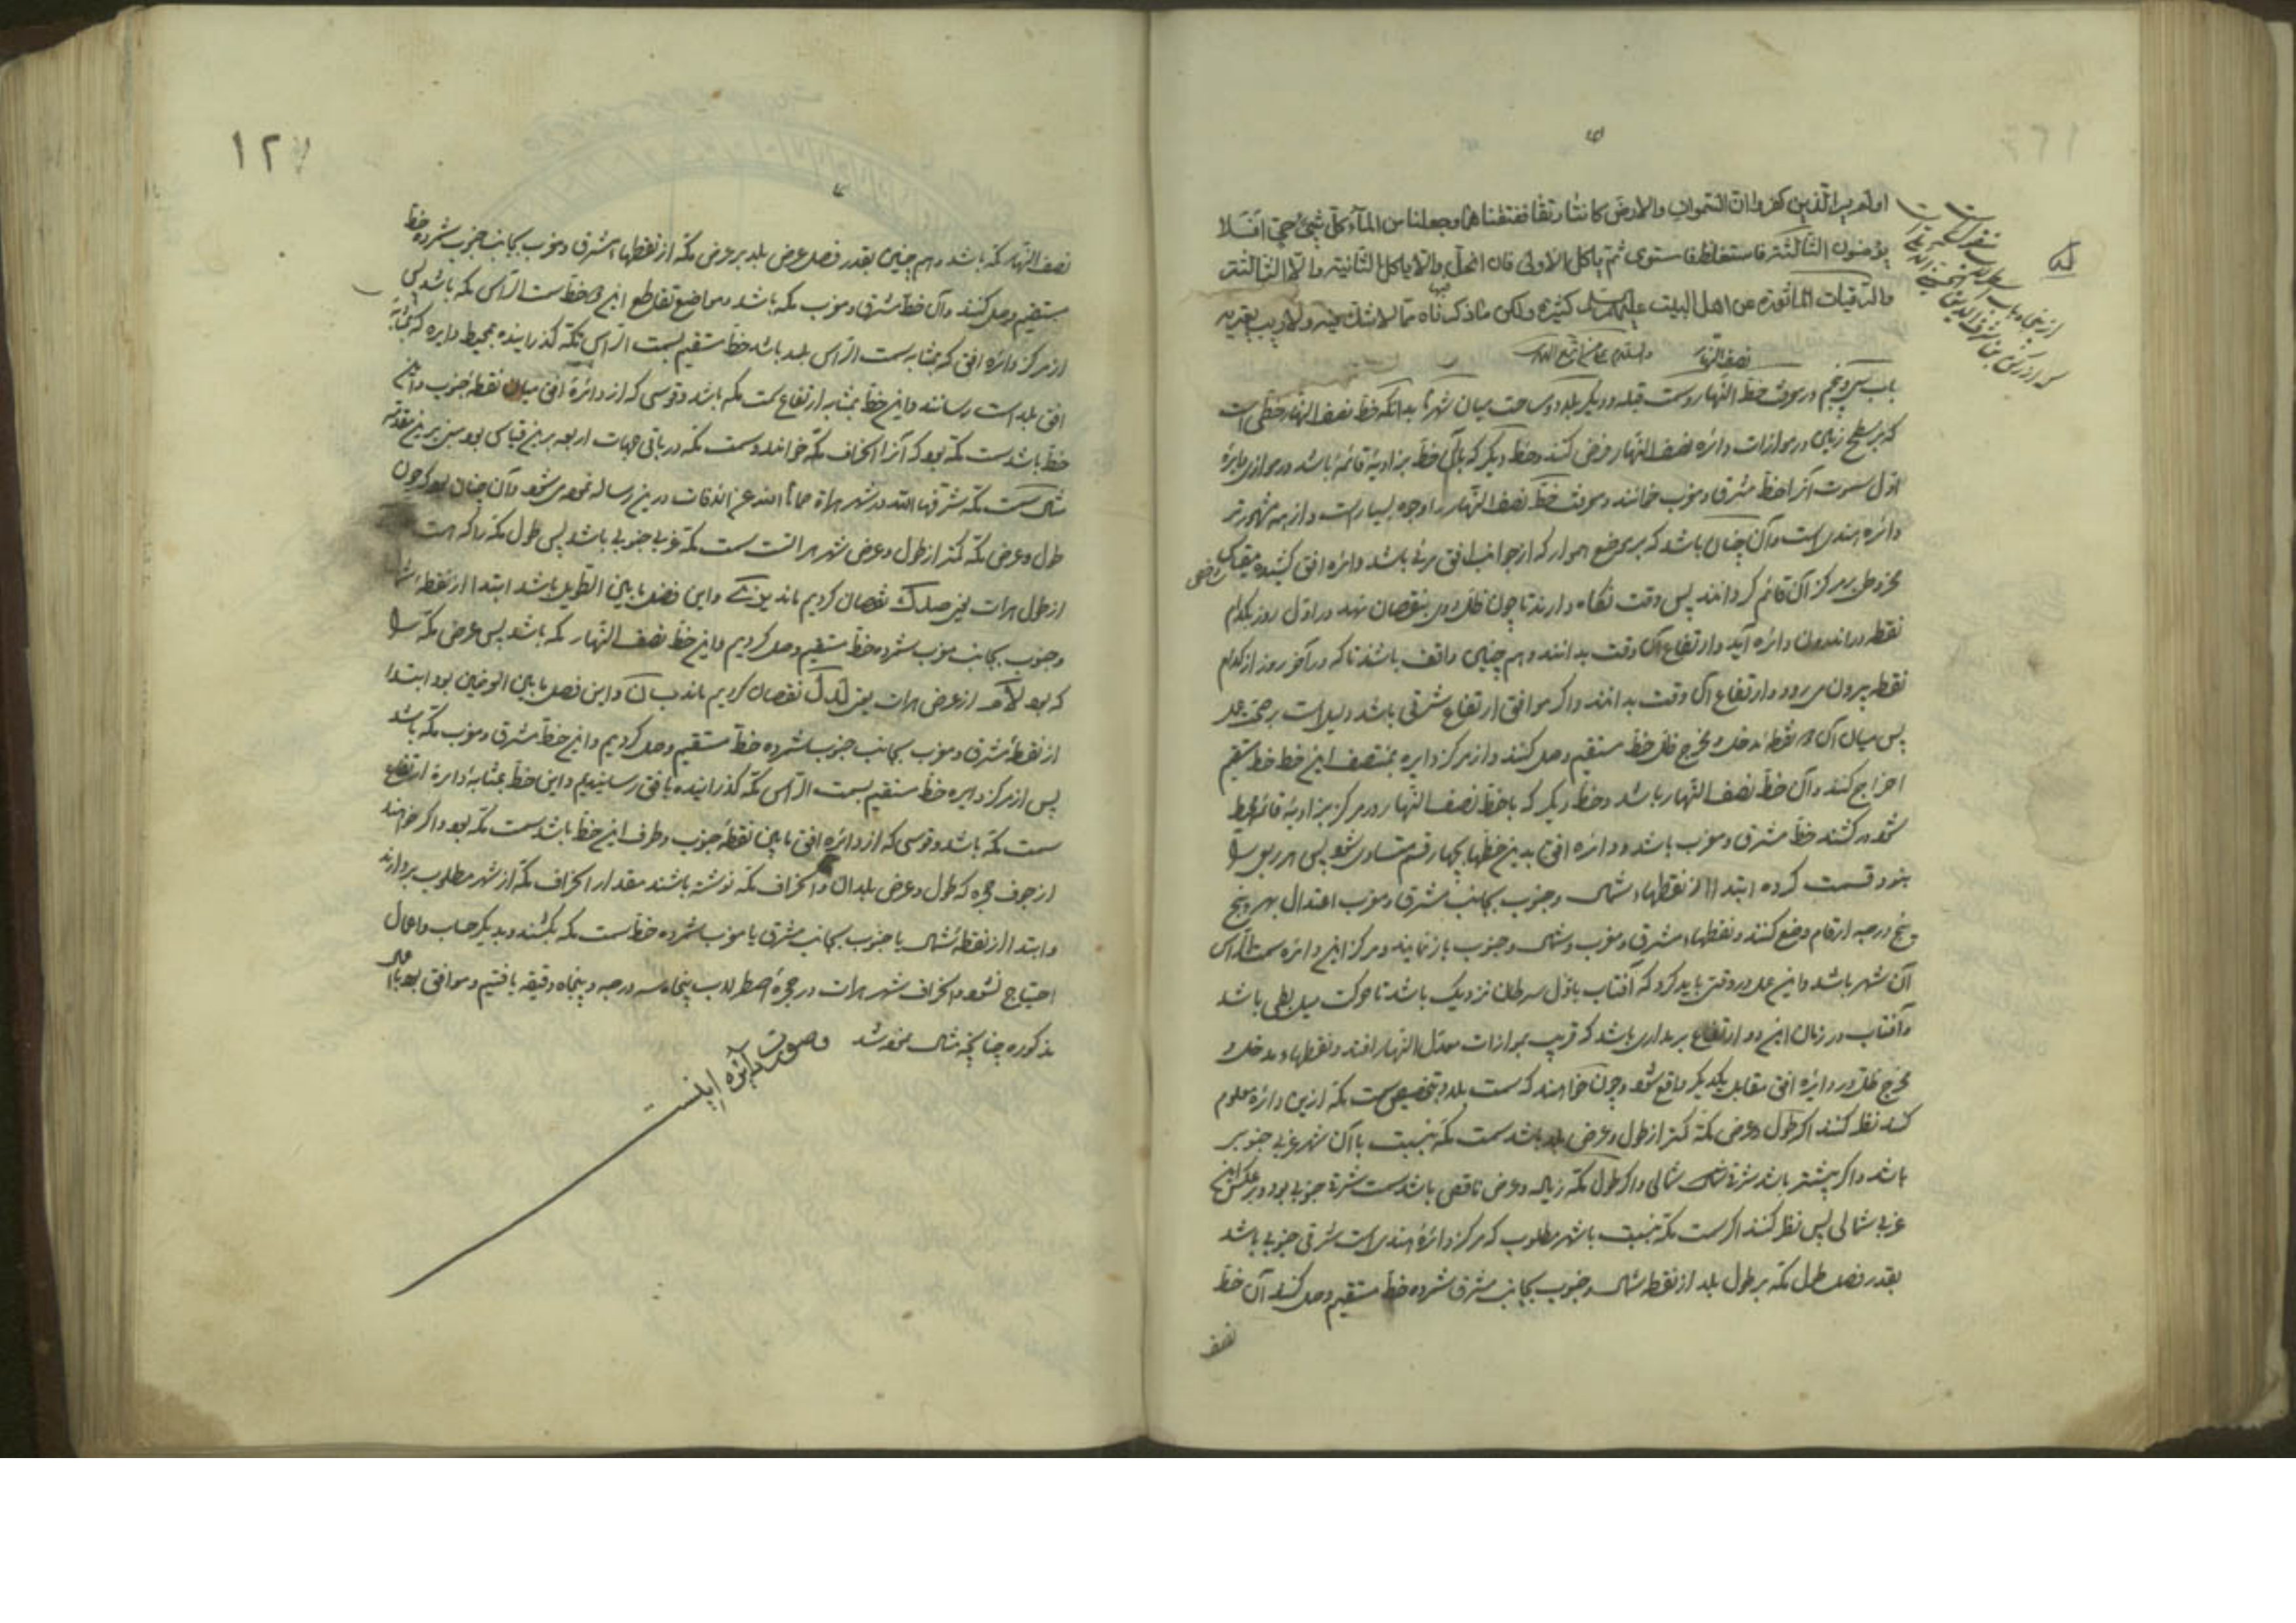 اولم یر الذین کفروا ان السموات والارض کانتا رتقا ففتقناهما وجعلنا من الماء کل شیئ حی افلا
یؤمنون الثالثة فاستغلظ فاستوی ثم یاکل الاولی فان انحل والا یاکل الثانیة والا الثالثة
والرقیات الماثورة عن اهل البیت علیهم السلم کثیرة ولکن ما ذکرناه مما لا شک فیه ولا ریب یعتریه
والسلام علی من اتبع الهدی
باب سی وپنجم در معرفت خط نصف النهار وسمت قبله ودیکر بلاد ومساحت میان شهرها بدانکه خط نصف النهار خطی است
که بر سطح زمین در موازات دائره نصف النهار فرض کنند وخط دیکر که با آن خط بزاویه قائمه باشد در موازی دایره
اول سموت آنرا خط مشرق ومغرب خوانند ومعرفت خط نصف النهار را وجوه بسیارست واز همه مشهورتر
دائره هندی است وآن چنان باشد که بر موضع هموار که از جوانب افق مرئی باشد دائره افق کشیده مقیاس
مخروطی بر مرکز آن قائم کردانند پس وقت نکاه دارند تا چون ظل روی بنقصان نهد در اول روز بکدام
نقطه در اندرون دائره آید وارتفاع آن وقت بدانند وهم چنین واقف باشند تا که در آخر روز از کدام
نقطه بیرون می رود وارتفاع آن وقت بدانند واکر موافق ارتفاع شرقی باشد دلیل است بر صحت عمل
پس میان آن دو نقطه مدخل ومخرج ظل خط مستقیم وصل کنند واز مرکز دایره بمنتصف این خط خط مستقیم
اخراج کنند وآن خط نصف النهار باشد وخط دیکر که با خط نصف النهار در مرکز بزاویه قائمه محیط
شود بر کشند خط مشرق ومغرب باشد ودائره افق بدین خطها بچهار قسم متساوی شود پس هر ربعی را
بنود قسمت کرده ابتدا از نقطهاء شمال وجنوب بجانب مشرق ومغرب اعتدال بهر پنج
پنج درجه ارقام وضع کنند ونقطهاء مشرق ومغرب وشمال وجنوب باز نمایند ومرکز این دائره سمت الراس
آن شهر باشد واین عمل در وقتی باید کرد که آفتاب باول سرطان نزدیک باشد تا حرکت میل بطی باشد
وآفتاب در زمان این دو ارتفاع بر مداری باشد که قریب بموازات معدل النهار افتد ونقطهاء مدخل و
مخرج ظل در دایره افق مقابل یکدیکر واقع شود وچون خواهند که سمت بلد وبتخصیص سمت مکه ازین دائره معلوم
کنند نظر کنند اکر طول وعرض مکه کمتر از طول وعرض بلد باشد سمت مکه بنسبت با آن شهر غربی جنوبی
باشد واکر بیشتر باشد شرقی شمالی واکر طول مکه زیاده وعرض ناقص باشد سمت شرقی جنوبی بود وبر عکس این
غربی شمالی پس نظر کنند اکر سمت مکه بنسبت با شهر مطلوب که مرکز دائره هندی است شرقی جنوبی باشد
بقدر فصل طول مکه بر طول بلد از نقطه شمال وجنوب بجانب مشرق شمرده خط مستقیم وصل کنند آن خط
نصف
١٢٧
نصف النهار مکه باشد وهم چنین بقدر فصل عرض بلد بر عرض مکه از نقطهاء مشرق ومغرب بجانب جنوب شمرده خط
مستقیم وصل کنند وآن خط مشرق ومغرب مکه باشد ومواضع تقاطع این دو خط سمت الراس مکه باشد پس
از مرکز دائره افق که بمثابه سمت الراس بلد باشد خط مستقیم بسمت الراس مکه کذرانیده بمحیط دایره که بمثابه
افق بلد است رسانند واین خط بمثابه ارتفاع سمت مکه باشد وقوسی که از دائره افق میان نقطه جنوب واین
خط باشد سمت مکه بود که آنرا انحراف مکه خوانند وسمت مکه در باقی جهات اربعه برین قیاس بود پس برین مقدمه
مثال سمت مکه شرفها الله در شهر هراة حماها الله عن الافات درین رساله نموده می شود وآن چنان بود که چون
طول وعرض مکه کمتر از طول وعرض شهر هراتست سمت مکه غربی جنوبی باشد پس طول مکه را که هست
از طول هرات یعنی صد ک نقصان کردیم ماند واین فضل ما بین الطولین باشد ابتدا از نقطه شمال
وجنوب بجانب مغرب شمرده خط مستقیم وصل کردیم واین خط نصف النهار مکه باشد پس عرض مکه را
که بود از عرض هرات یعنی لد ل نقصان کردیم ماند واین فصل ما بین العرضین بود ابتدا
از نقطه مشرق ومغرب بجانب جنوب شمرده خط مستقیم وصل کردیم واین خط مشرق ومغرب مکه باشد
پس از مرکز دایره خط مستقیم بسمت الراس مکه کذرانیده بافق رسانیدیم واین خط بمثابه دایره ارتفاع
سمت مکه باشد وقوسی که از دائره افق ما بین نقطه جنوب وطرف این خط باشد سمت مکه بود واکر خواهند
از جوف حجره که طول وعرض بلدان وانحراف مکه نوشته باشند مقدار انحراف مکه از شهر مطلوب بردارند
وابتدا از نقطه شمال یا جنوب بجانب مشرق یا مغرب شمرده خط سمت مکه بکشند وبدیکر حساب واعمال
احتیاج نشود وانحراف شهر هرات در حجره اصطرلاب پنجاه وسه درجه وپنجاه دقیقه یافتیم وموافق بود با
مذکوره چنانچه مثال نموده شد وصورت دائره اینست